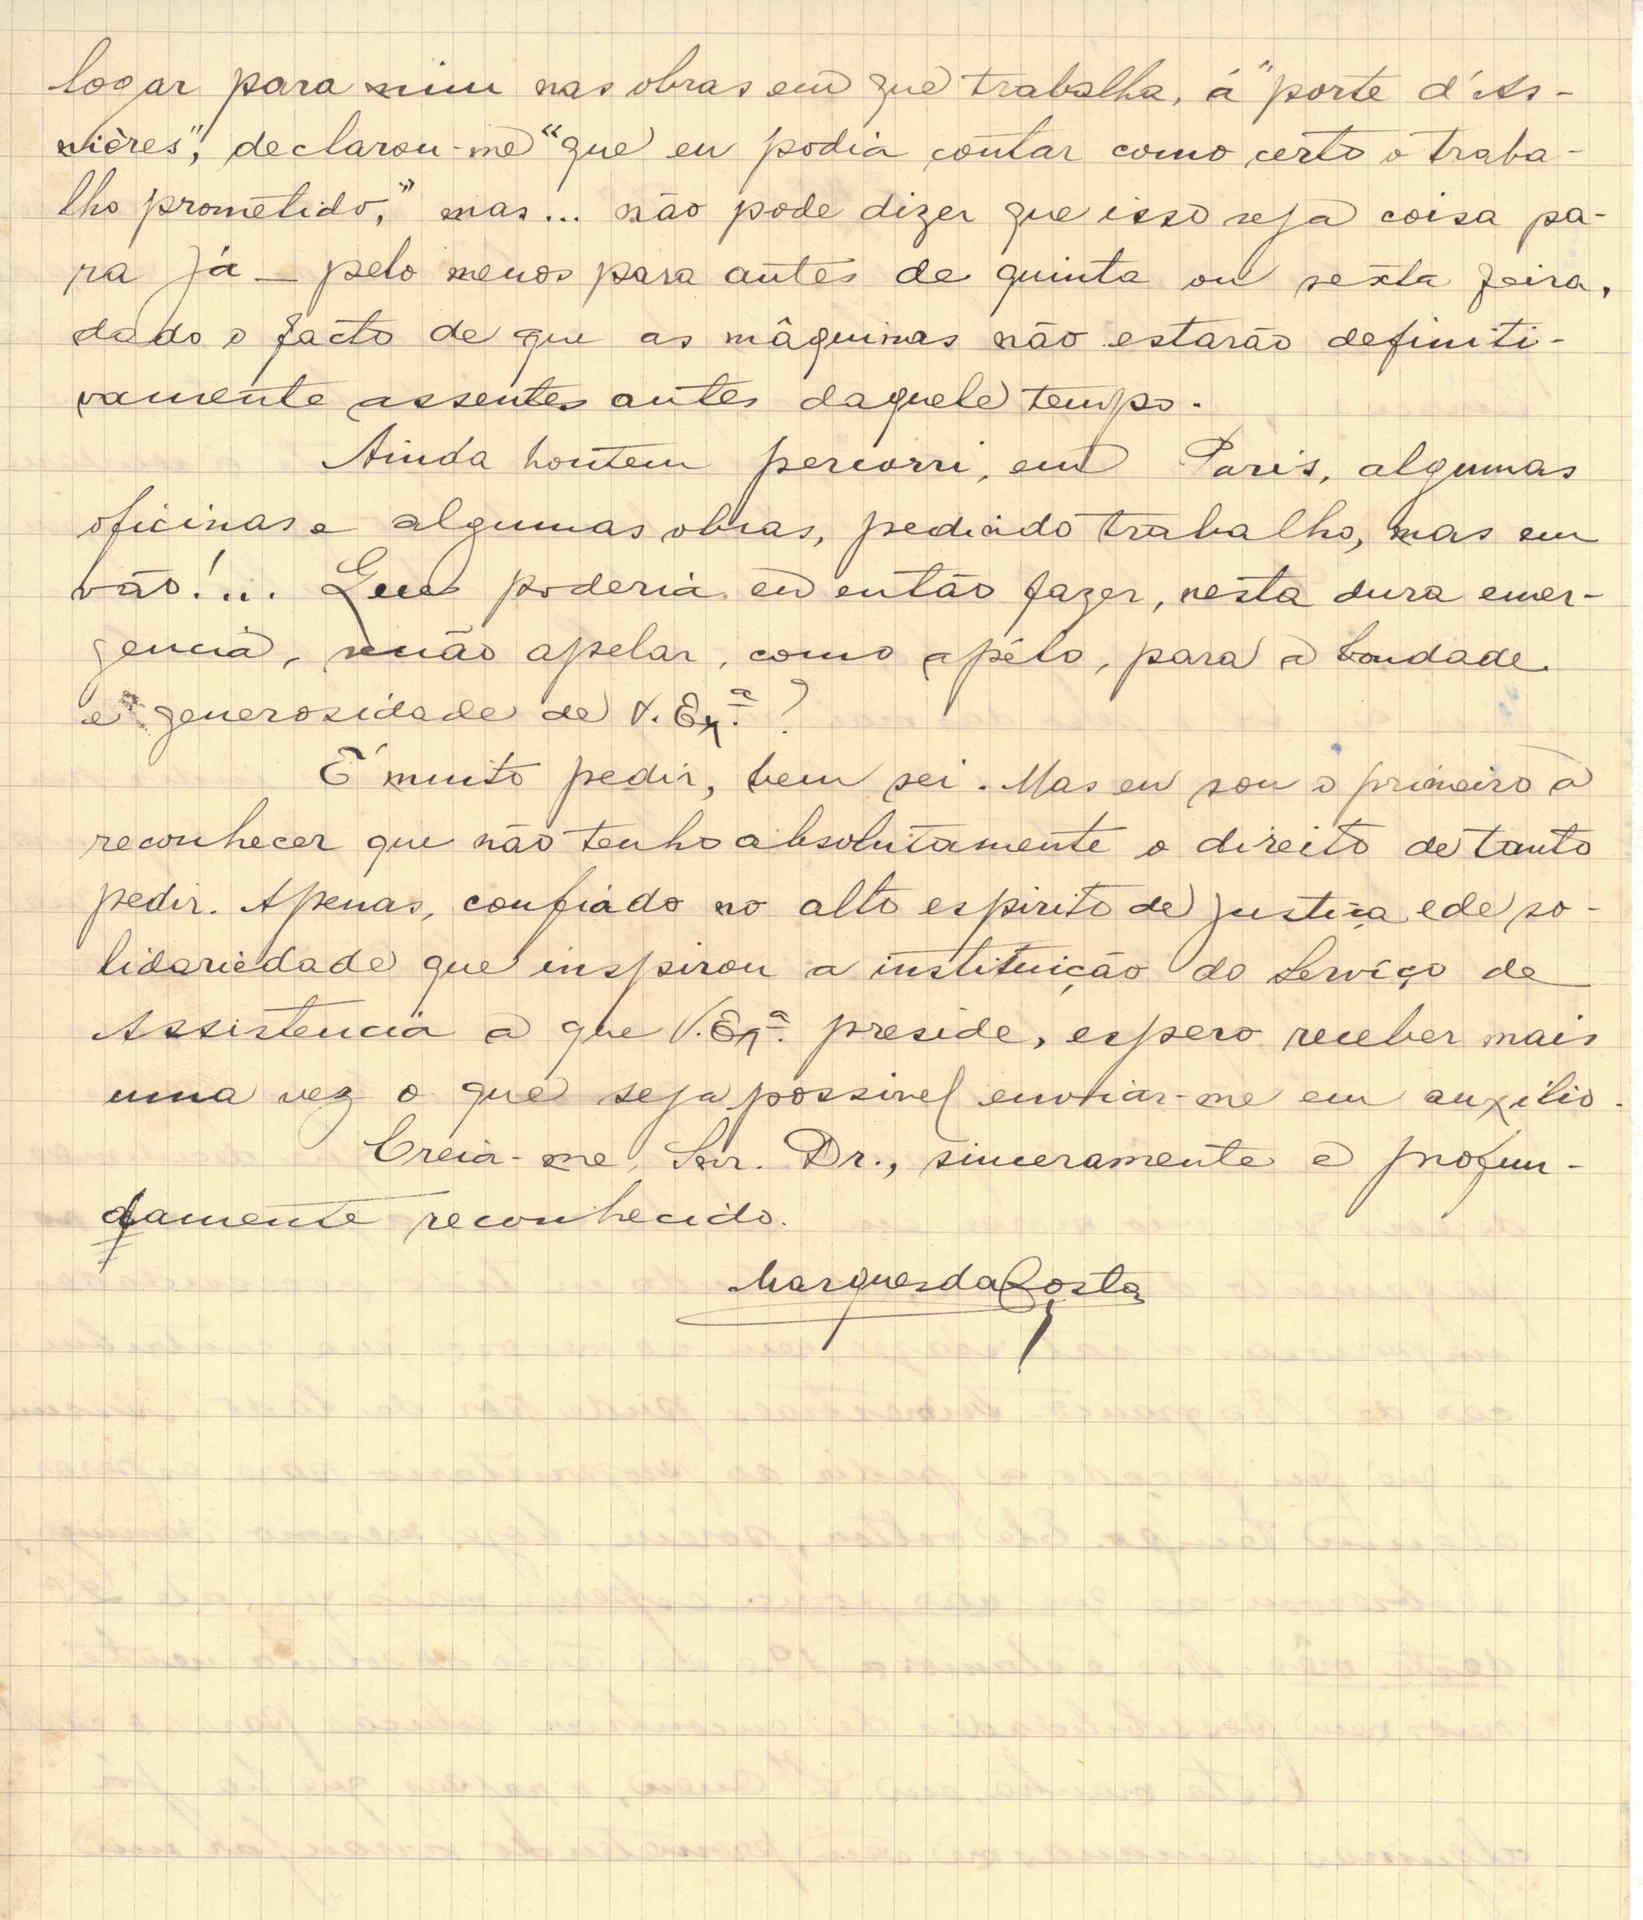 logar para mim nas obras em que trabalha, á "porte d'As-
nières", declarou-me "que eu podia contar como certo o traba-
lho prometido," mas... não pode dizer que isso seja coisa pa-
ra já — pelo menos para antes de quinta ou sexta feira,
dado o facto de que as mâquinas não estarão definiti-
vamente assentes antes daquele tempo.
Ainda hontem percorri, em Paris, algumas
oficinas e algumas obras, pedindo trabalho, mas em
vão!... Que poderia eu então fazer, nesta dura emer-
gencia, senão apelar, como apélo, para a bondade
e generosidade de V. Exª. ?
É muito pedir, bem sei. Mas eu sou o primeiro a
reconhecer que não tenho absolutamente o direito de tanto
pedir. Apenas, confiado no alto espirito de justiça e de so-
lidariedade que inspirou a instituição do Serviço de
Assistencia a que V. Exª. preside, espero receber mais
uma vez o que seja possivel enviar-me em auxilio.
Creia-me, Snr. Dr., sinceramente e profun-
damente reconhecido.
Marques da Costa